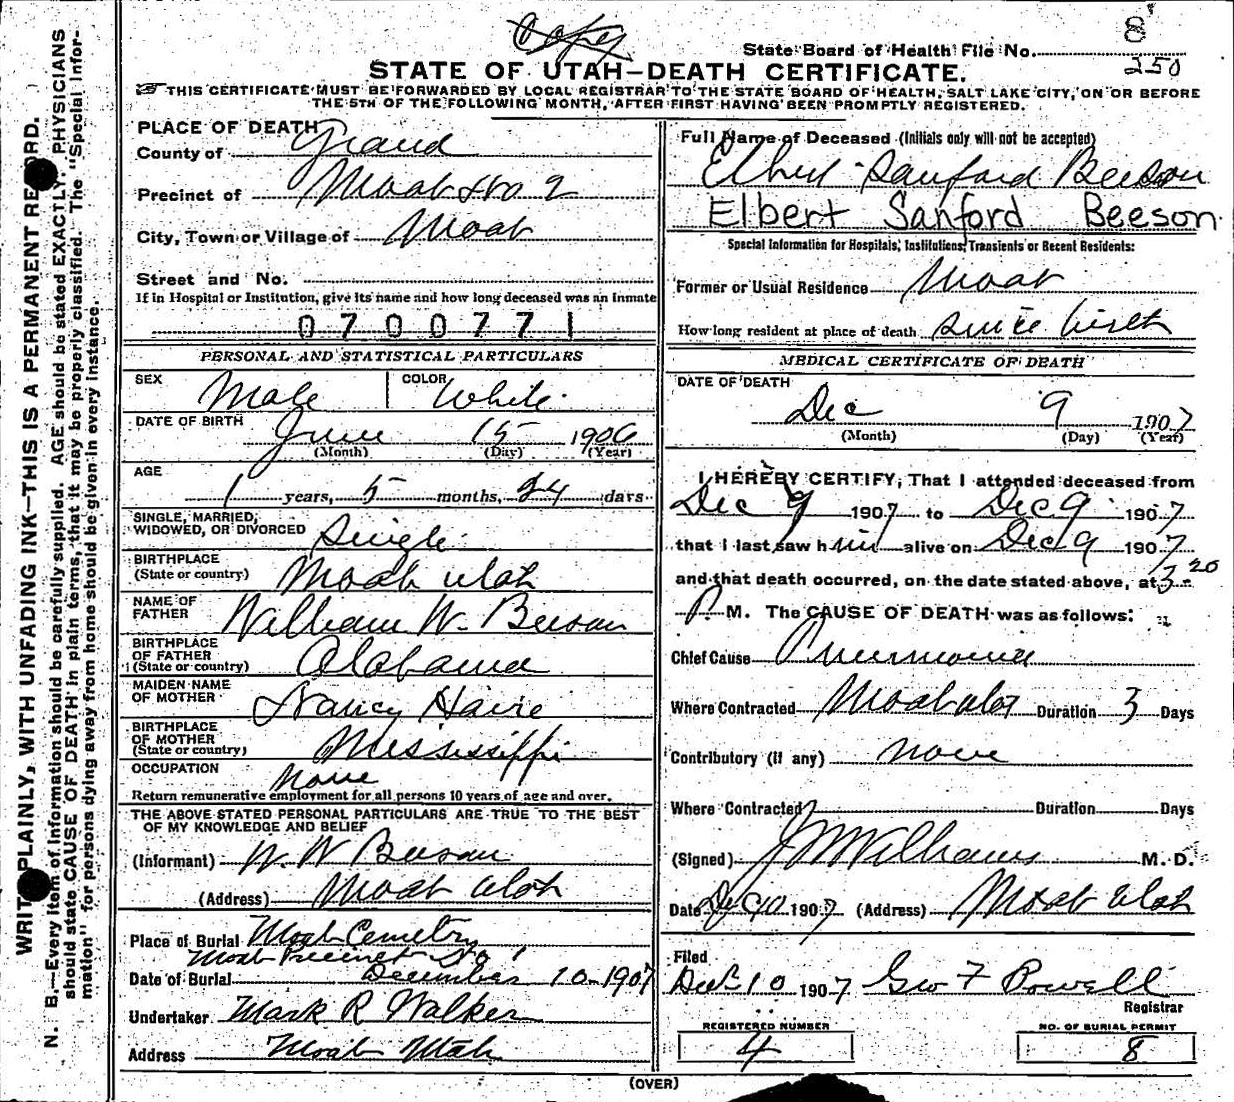 Copy
State Board of Health File No. 8
250
STATE OF UTAH—DEATH CERTIFICATE.
THIS CERTIFICATE MUST BE FORWARDED BY LOCAL REGISTRAR TO THE STATE BOARD OF HEALTH, SALT LAKE CITY, ON OR BEFORE
THE 5TH OF THE FOLLOWING MONTH, AFTER FIRST HAVING BEEN PROMPTLY REGISTERED.
WRITE PLAINLY, WITH UNFADING INK—THIS IS A PERMANENT RECORD.
N. B.—Every item of information should be carefully supplied. AGE should be stated EXACTLY. PHYSICIANS
should state CAUSE OF DEATH in plain terms, that it may be properly classified. The "Special Infor-
mation" for persons dying away from home should be given in every instance.
PLACE OF DEATH
County of Grand
Precinct of Moab No 2
City, Town or Village of Moab
Street and No.
If in Hospital or Institution, give its name and how long deceased was an Inmate
0700771
PERSONAL AND STATISTICAL PARTICULARS
SEX Male COLOR White
DATE OF BIRTH June 15 1906
(Month) (Day) (Year)
AGE
1 years, 5 months, 24 days
SINGLE, MARRIED,
WIDOWED, OR DIVORCED Single
BIRTHPLACE
(State or country) Moab Utah
NAME OF
FATHER William W. Beeson
BIRTHPLACE
OF FATHER
(State or country) Alabama
MAIDEN NAME
OF MOTHER Nancy Haire
BIRTHPLACE
OF MOTHER
(State or country) Mississippi
OCCUPATION None
Return remunerative employment for all persons 10 years of age and over.
THE ABOVE STATED PERSONAL PARTICULARS ARE TRUE TO THE BEST
OF MY KNOWLEDGE AND BELIEF
(Informant) W. W Beeson
(Address) Moab Utah
Place of Burial Moab Cemetry
Moab Precinct No 1
Date of Burial December 10-1907
Undertaker Mark R Walker
Address Moab Utah
Full Name of Deceased (Initials only will not be accepted)
Sanford Beeson
Elbert Sanford Beeson
Special Information for Hospitals, Institutions, Transients or Recent Residents:
Former or Usual Residence Moab
How long resident at place of death since birth
MEDICAL CERTIFICATE OF DEATH
DATE OF DEATH
Dec 9 1907
(Month) (Day) (Year)
I HEREBY CERTIFY, That I attended deceased from
Dec 9 1907 to Dec 9 1907
that I last saw him alive on Dec 9 1907
and that death occurred, on the date stated above, at 3 20
P M. The CAUSE OF DEATH was as follows:
Chief Cause Pneumonia
Where Contracted Moab Utah Duration 3 Days
Contributory (if any) None
Where Contracted Duration Days
(Signed) J W Williams M. D.
Date Dec 10 1907 (Address) Moab Utah
Filed
Dec 10 1907 Geo F Powell
Registrar
REGISTERED NUMBER
4
NO. OF BURIAL PERMIT
8
(OVER)